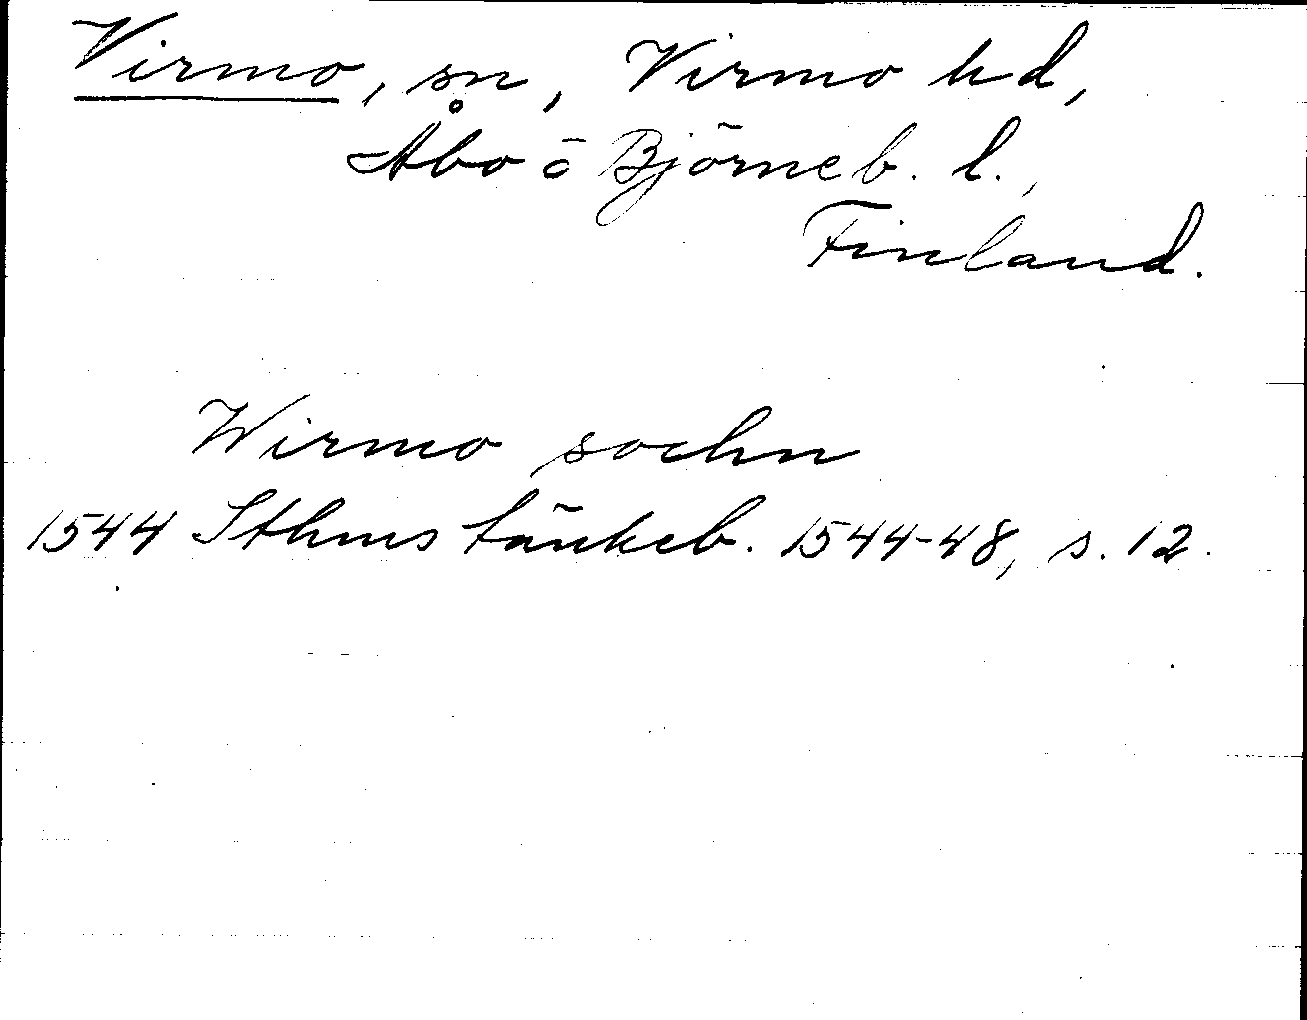 Virmo, sn, Virmo hd,
Åbo ö Björneb. l.,
Finland.
Wirmo sochn
1544 Sthms tänkeb. 1544-48, s. 12.